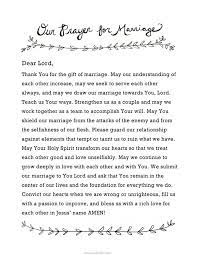 Our Prayer for Marriage
Dear Lord,
Thank You for the gift of marriage. May our understanding of
each other increase, may we seek to serve each other
always, and may we draw our marriage towards You, Lord.
Teach us Your ways. Strengthen us as a couple and may we
work together as a team to accomplish Your will. May You
shield our marriage from the attacks of the enemy and from
the selfishness of our flesh. Please guard our relationship
against elements that tempt or taunt us to ruin what we have.
May Your Holy Spirit transform our hearts so that we treat
each other good and love unselfishly. May we continue to
grow deeply in love with each other and with You. We submit
our marriage to You Lord and ask that You remain in the
center of our lives and the foundation for everything we do.
Convict our hearts when we are wrong or unrighteous, fill us
with a passion to improve, and bless us with a rich love for
each other in Jesus' name AMEN!